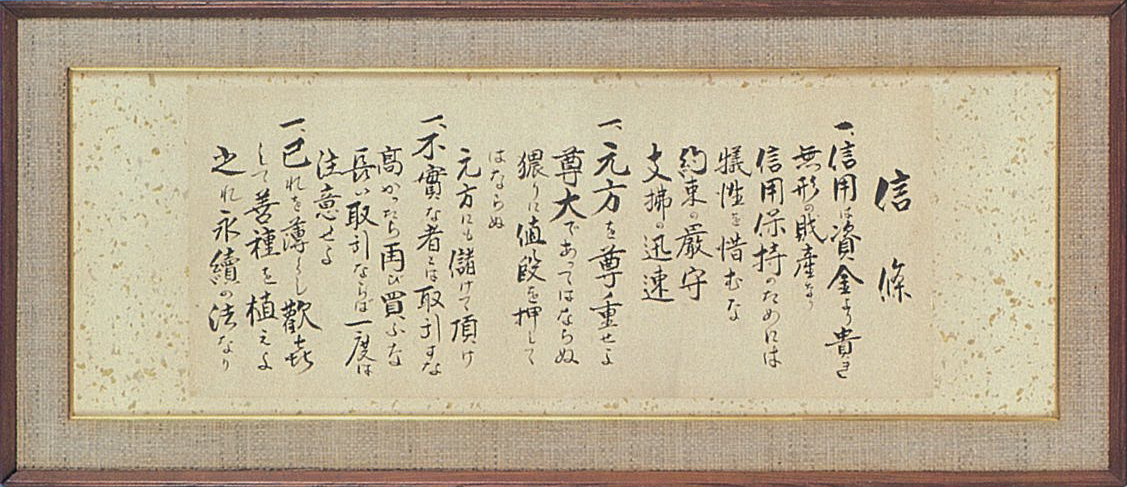 信條
一、信用は資金より貴き
無形の財産なり
信用保持のためには
犠牲を惜むな
約束の厳守
支拂の迅速
一、元方を尊重せよ
尊大であってはならぬ
猥りに値段を押して
はならぬ
元方にも儲けて頂け
一、不實な者とは取引すな
高かったら再び買ふな
長い取引ならば一度は
注意せよ
一、己れを薄くし歡喜
して善種を植えよ
之れ永續の法なり